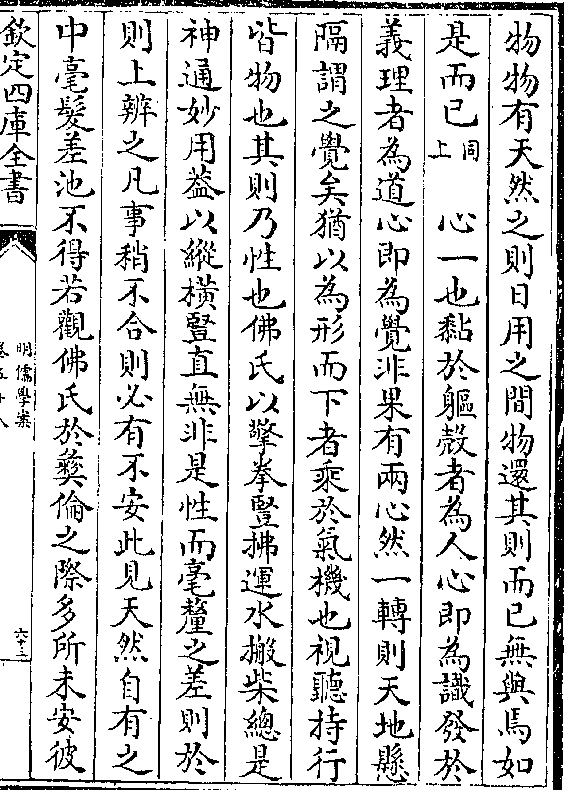 物物有天然之則日用之間物還其則而已無與焉如
是而已同上　心一也黏於軀殼者為人心即為識發於
義理者為道心即為覺非果有兩心然一轉則天地懸
隔謂之覺矣猶以為形而下者乘於氣機也視聽持行
皆物也其則乃性也佛氏以擎拳豎拂運水搬柴總是
神通妙用葢以縱橫豎直無非是性而毫釐之差則於
則上辨之凡事稍不合則必有不安此見天然自有之
中毫髮差池不得若觀佛氏於彛倫之際多所未安彼
欽定四庫全書
明儒學案
卷五十八
六十三